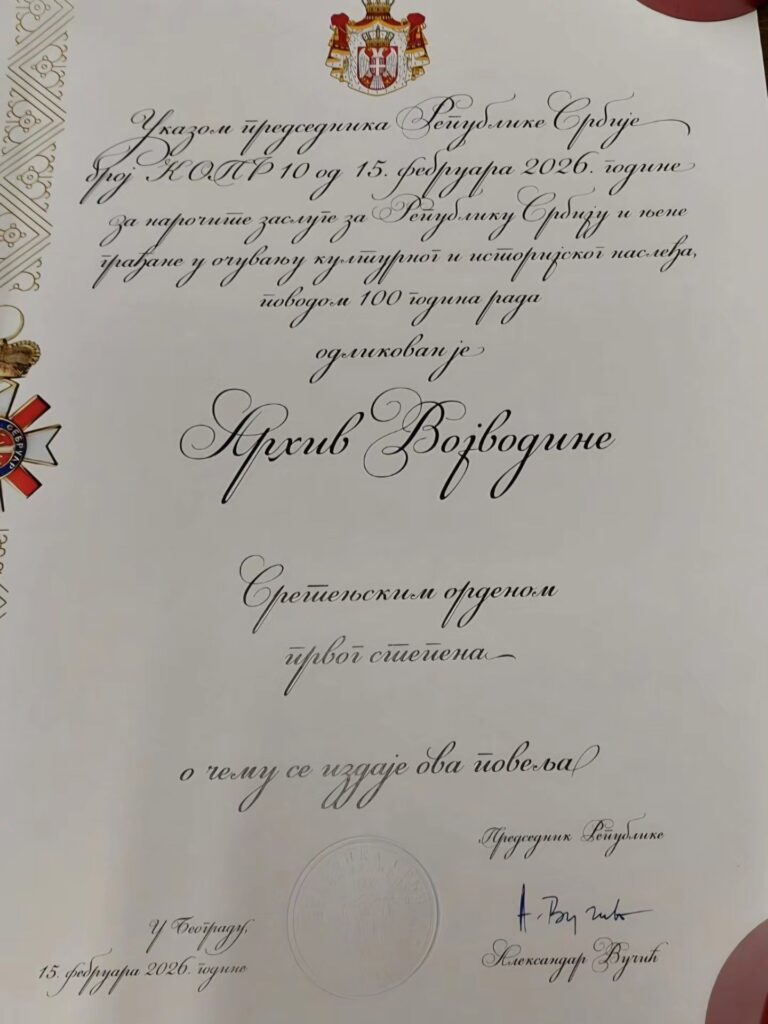 Указом председника Републике Србије
број КОПР 10 од 15. фебруара 2026. године
за нарочите заслуге за Републику Србију и њене
грађане у очувању културног и историјског наслеђа,
поводом 100 година рада
одликован је
Архив Војводине
Сретењским орденом
првог степена
о чему се издаје ова повеља
Председник Републике
А. Вучић
Александар Вучић
У Београду,
15. фебруара 2026. године